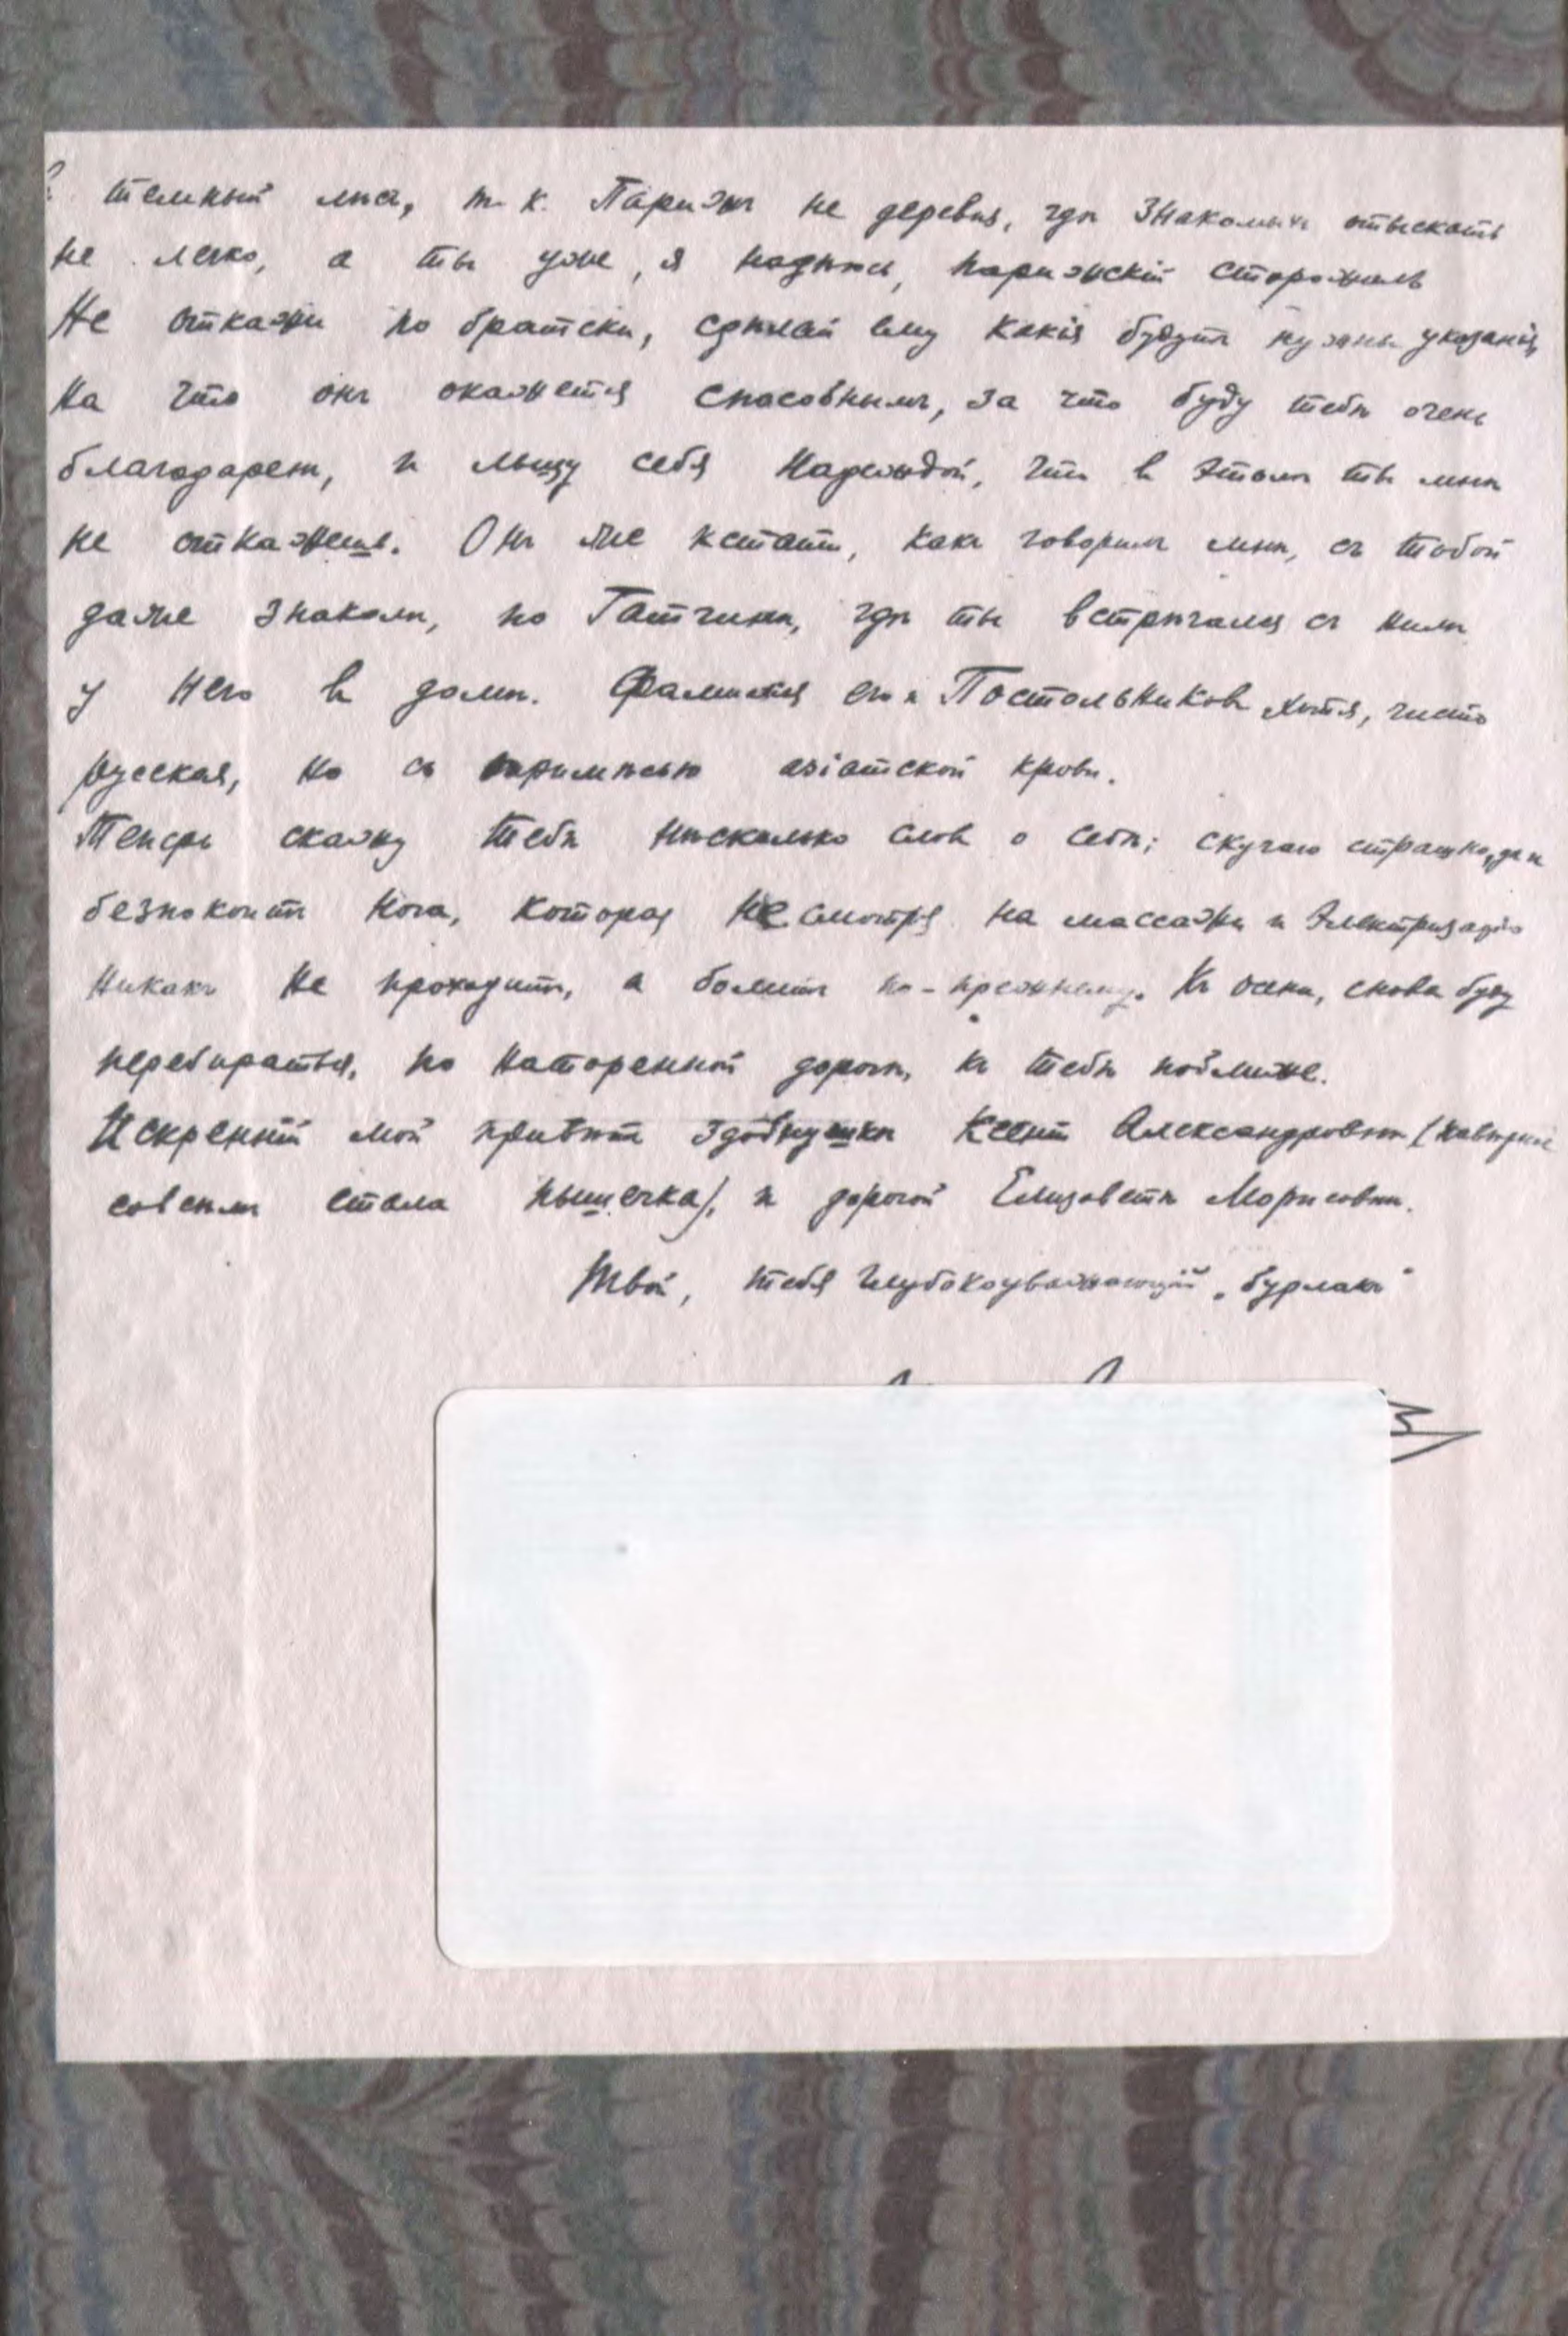 темный лѣсъ, т. к. Парижъ не деревня, гдѣ знакомыхъ отыскать
не легко, а ты уже, я надѣюсь, парижскій старожилъ
Не откажи по братски, сдѣлай ему какія будутъ нужны указанія,
на что онъ окажется спасовнымъ, за что буду тебѣ очень
благодарен, и льщу себя надеждой, что в этомъ ты мнѣ
не откажеше. Онъ же кстати, какъ говорилъ мнѣ, съ тобой
даже знакомъ, по Гатчинѣ, гдѣ ты встрѣчался съ нимъ
у него в домѣ. Фамилія его Постольников хотя, чисто
русская, но съ примѣсью азіатской крови.
Теперь скажу тебѣ нѣсколько слов о себѣ; скучаю страшно, да и
безпокоитъ нога, которая не смотря на массажи и электризацію
никакъ не проходитъ, а болитъ по-прежнему. Къ осени, снова буду
перебираться, по наторенной дорогѣ, къ тебѣ поближе.
Искренній мой привѣтъ здобнушкѣ Ксеніи Александровнѣ (навѣрное
совсѣмъ стала пышечка), и дорогой Елизаветѣ Морисовнѣ.
Твой, тебя глубокоуважающій „бурлакъ"